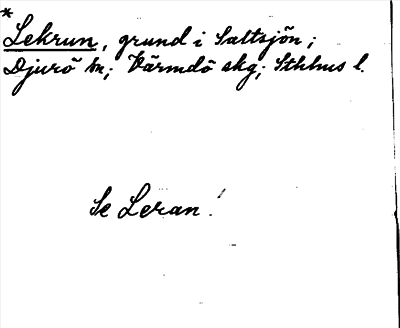 *
Lekrun, grund i Saltsjön;
Djurö sn; Värmdö skg; Sthlms l.
Se Leran!